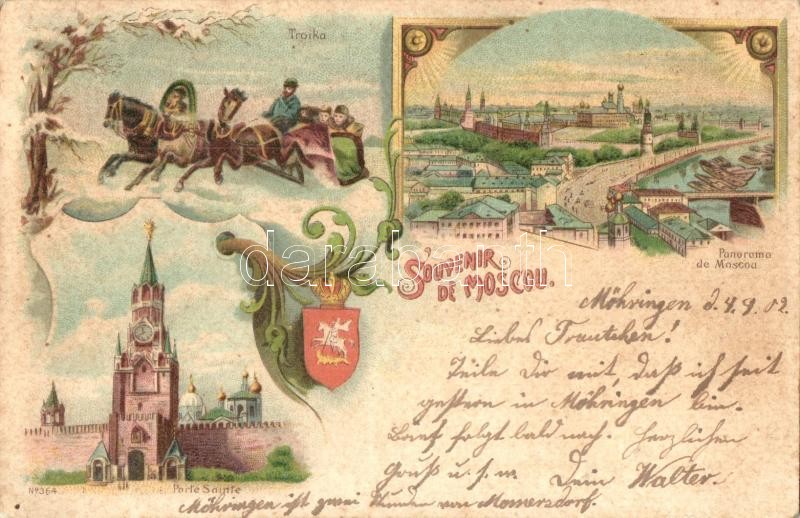 Troika
Panorama
de Moscou
SOUVENIR
DE MOSCOU.
Möhringen d. 4.9.02
Liebes Trautchen!
Teile Dir mit, daß ich seit
gestern in Möhringen bin.
Brief folgt bald nach. Herzlichen
Gruß u. s. w. Dein Walter.
Porte Sainte
No 364
Möhringen ist zwei Stunden von Momersdorf.
darabanth.com